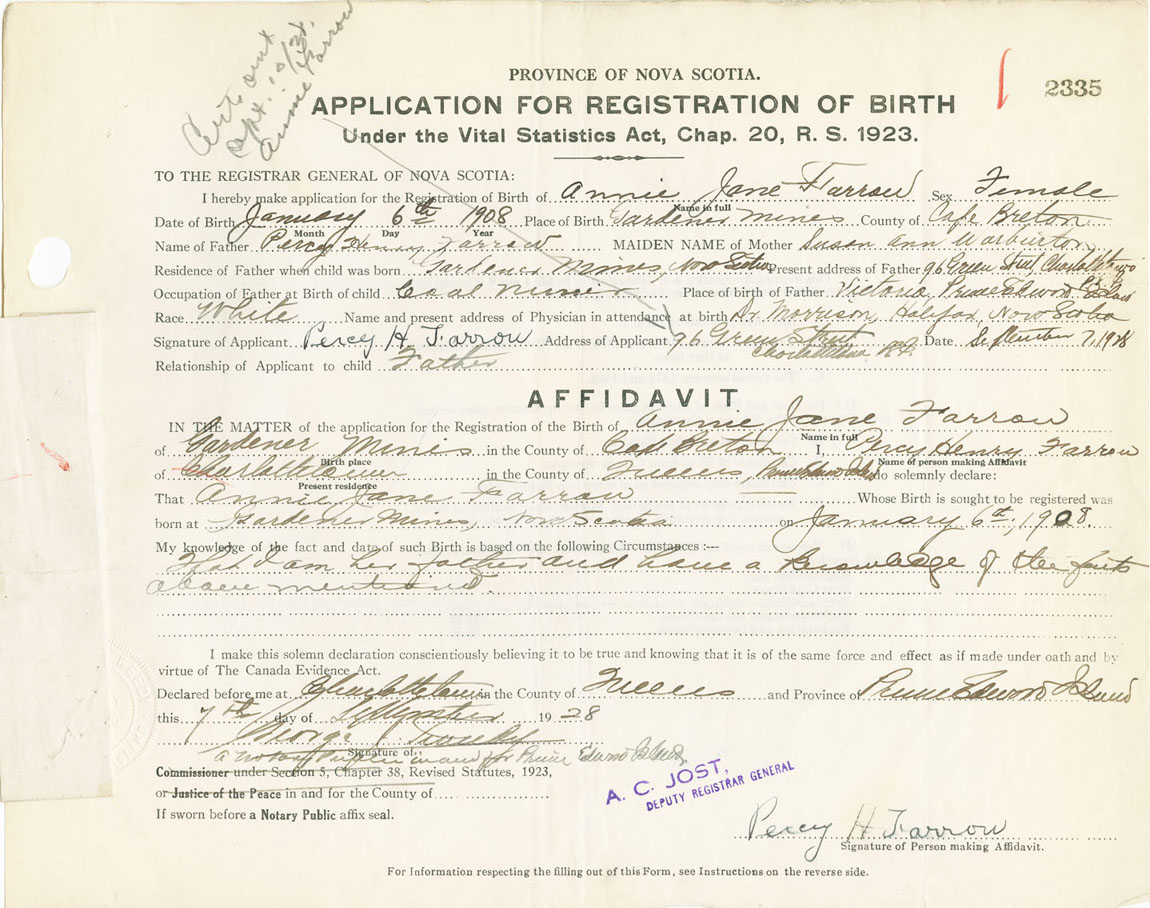 Cert. out
Sept. 10/34.
Annie Farrow
PROVINCE OF NOVA SCOTIA.
2335
APPLICATION FOR REGISTRATION OF BIRTH
Under the Vital Statistics Act, Chap. 20, R. S. 1923.
TO THE REGISTRAR GENERAL OF NOVA SCOTIA:
I hereby make application for the Registration of Birth of Annie Jane Farrow Sex Female
Name in full
Date of Birth January 6th 1908 Place of Birth Gardener Mines County of Cape Breton
Month Day Year
Name of Father Percy Henry Farrow MAIDEN NAME of Mother Susan Ann Warburton
Residence of Father when child was born Gardener Mines, Nova Scotia Present address of Father 96 Green Street, Charlottetown
P. E. Island
Occupation of Father at Birth of child Coal Miner Place of birth of Father Victoria, Prince Edward Island
Race White Name and present address of Physician in attendance at birth Dr Morrison, Halifax, Nova Scotia
Signature of Applicant Percy H Farrow Address of Applicant 96 Green Street Date September 7, 1928
Charlottetown
Relationship of Applicant to child Father
AFFIDAVIT
IN THE MATTER of the application for the Registration of the Birth of Annie Jane Farrow
Name in full
of Gardener Mines in the County of Cape Breton I, Percy Henry Farrow
Birth place Name of person making Affidavit
of Charlottetown in the County of Queens, Prince Edward Island do solemnly declare:
Present residence
That Annie Jane Farrow Whose Birth is sought to be registered was
born at Gardener Mines, Nova Scotia on January 6th, 1908.
My knowledge of the fact and date of such Birth is based on the following Circumstances :—
That I am her father and have a knowledge of the facts
above mentioned.
I make this solemn declaration conscientiously believing it to be true and knowing that it is of the same force and effect as if made under oath and by
virtue of The Canada Evidence Act.
Declared before me at Charlottetown in the County of Queens and Province of Prince Edward Island
this 7th day of September 1928
George
Signature of
a Notary Public in and for Prince Edward Island
Commissioner under Section 5, Chapter 38, Revised Statutes, 1923,
or Justice of the Peace in and for the County of
If sworn before a Notary Public affix seal.
A. C. JOST,
DEPUTY REGISTRAR GENERAL
Percy H Farrow
Signature of Person making Affidavit.
For Information respecting the filling out of this Form, see Instructions on the reverse side.